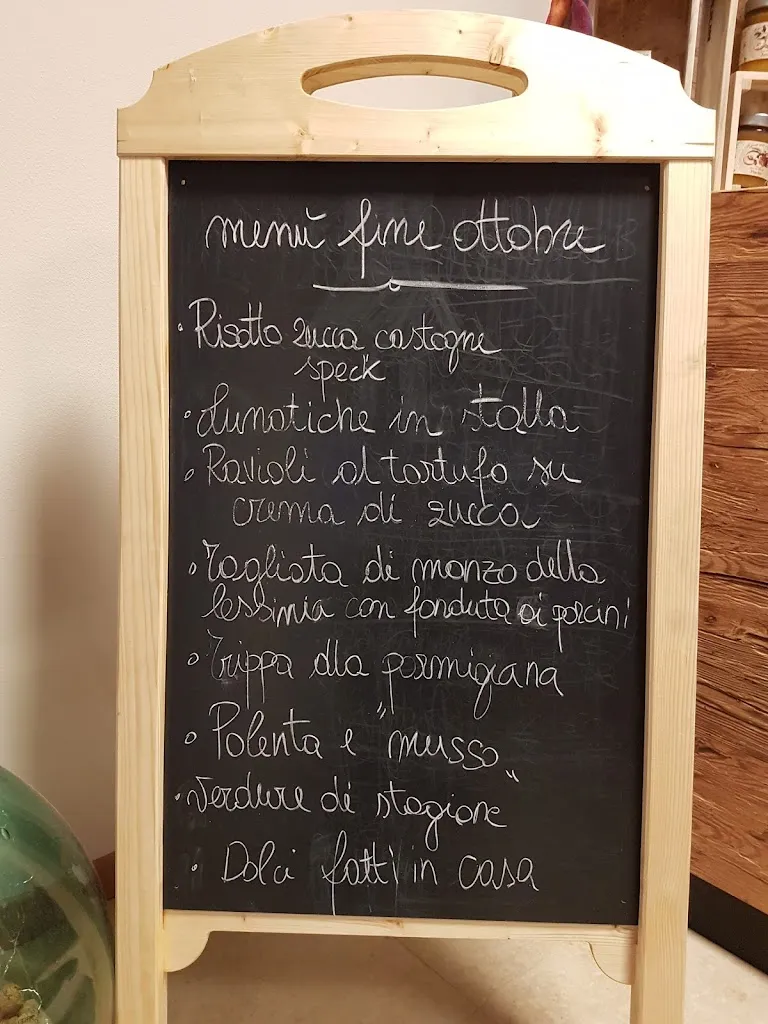 menù fine ottobre
• Risotto zucca castagne
speck
• Lunatiche in stalla
• Ravioli al tartufo su
crema di zucca
• Tagliata di manzo della
lessinia con fonduta ai porcini
• Trippa alla parmigiana
• Polenta e "musso"
• Verdure di stagione
• Dolci fatti in casa